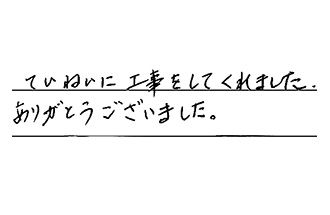 ていねいに工事をしてくれました.
ありがとうございました。